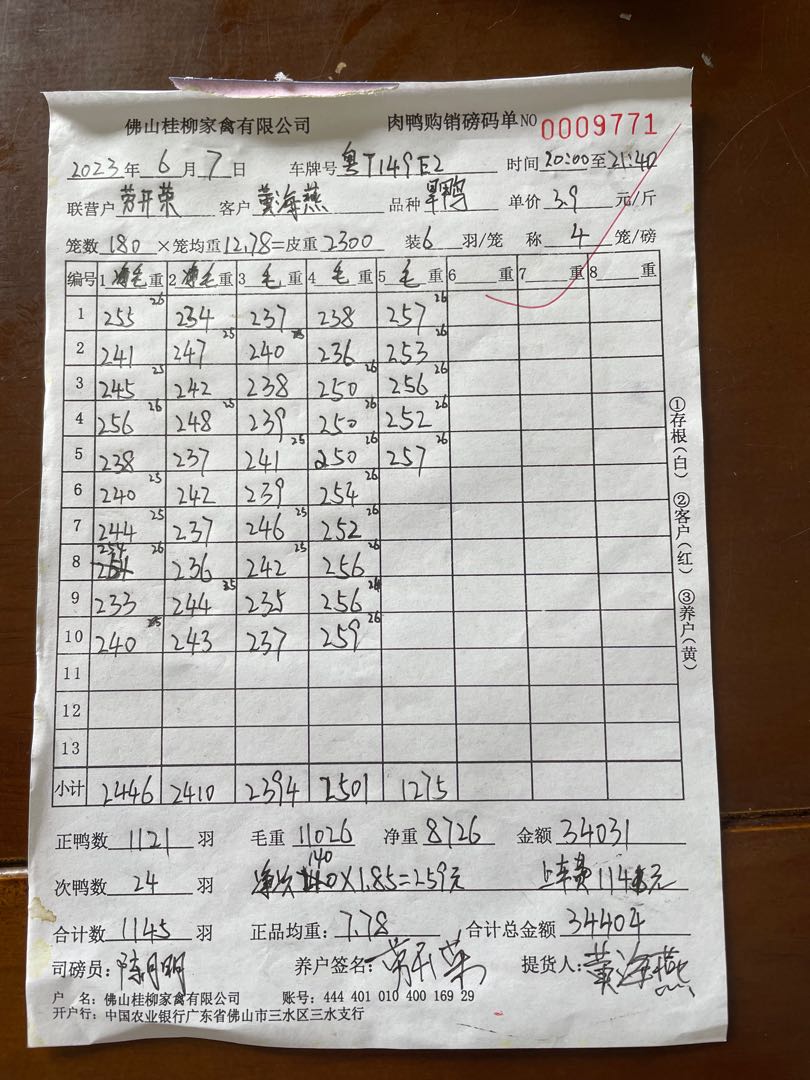 佛山桂柳家禽有限公司 肉鸭购销磅码单 NO 0009771
2023年6月7日 车牌号 粤T149E2 时间20:00至21:40
联营户 劳开荣 客户 黄海燕 品种 旱鸭 单价 3.9 元/斤
笼数 180 ×笼均重12.78=皮重 2300 装6 羽/笼 称 4 笼/磅
编号 1 净毛重 2 净毛重 3 毛重 4 毛重 5 毛重 6 重 7 重 8 重
1 255 26 234 237 238 257 26
2 241 247 25 240 25 236 253 26
3 245 25 242 238 250 26 256 26
4 256 26 248 25 239 250 26 252 26
5 238 237 241 25 250 26 257 26
6 240 25 242 239 254 26
7 244 25 237 246 25 252 26
8 254 26 236 242 25 256 26
9 233 244 25 235 256 26
10 240 25 243 237 259 26
11
12
13
小计 2446 2410 2394 2501 1275
①存根(白) ②客户(红) ③养户(黄)
正鸭数 1121 羽 毛重 11026 净重 8726 金额 34031
次鸭数 24 羽 140×1.85=259元 上车费114元
合计数 1145 羽 正品均重: 7.78 合计总金额 34404
司磅员: 陈月明 养户签名: 劳开荣 提货人: 黄海燕
户 名: 佛山桂柳家禽有限公司 账号: 444 401 010 400 169 29
开户行: 中国农业银行广东省佛山市三水区三水支行